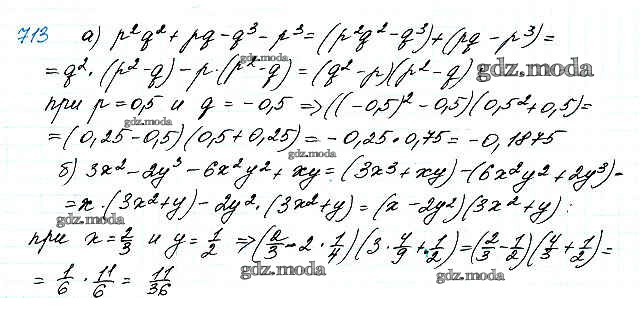 713 а) p²q² + pq - q³ - p³ = (p²q² - q³) + (pq - p³) =
= q² · (p² - q) - p · (p² - q) = (q² - p)(p² - q) gdz.moda
gdz.moda
при p = 0,5 и q = -0,5 ⇒ ((-0,5)² - 0,5)(0,5² + 0,5) =
gdz.moda
= (0,25 - 0,5)(0,5 + 0,25) = -0,25 · 0,75 = -0,1875
gdz.moda
б) 3x² - 2y³ - 6x²y² + xy = (3x³ + xy) - (6x²y² + 2y³) =
= x · (3x² + y) - 2y² · (3x² + y) = (x - 2y²)(3x² + y) :
gdz.moda
при x = 2/3 и y = 1/2 ⇒ (2/3 - 2 · 1/4)(3 · 4/9 + 1/2) = (2/3 - 1/2)(4/3 + 1/2) =
gdz.moda gdz.moda
= 1/6 · 11/6 = 11/36